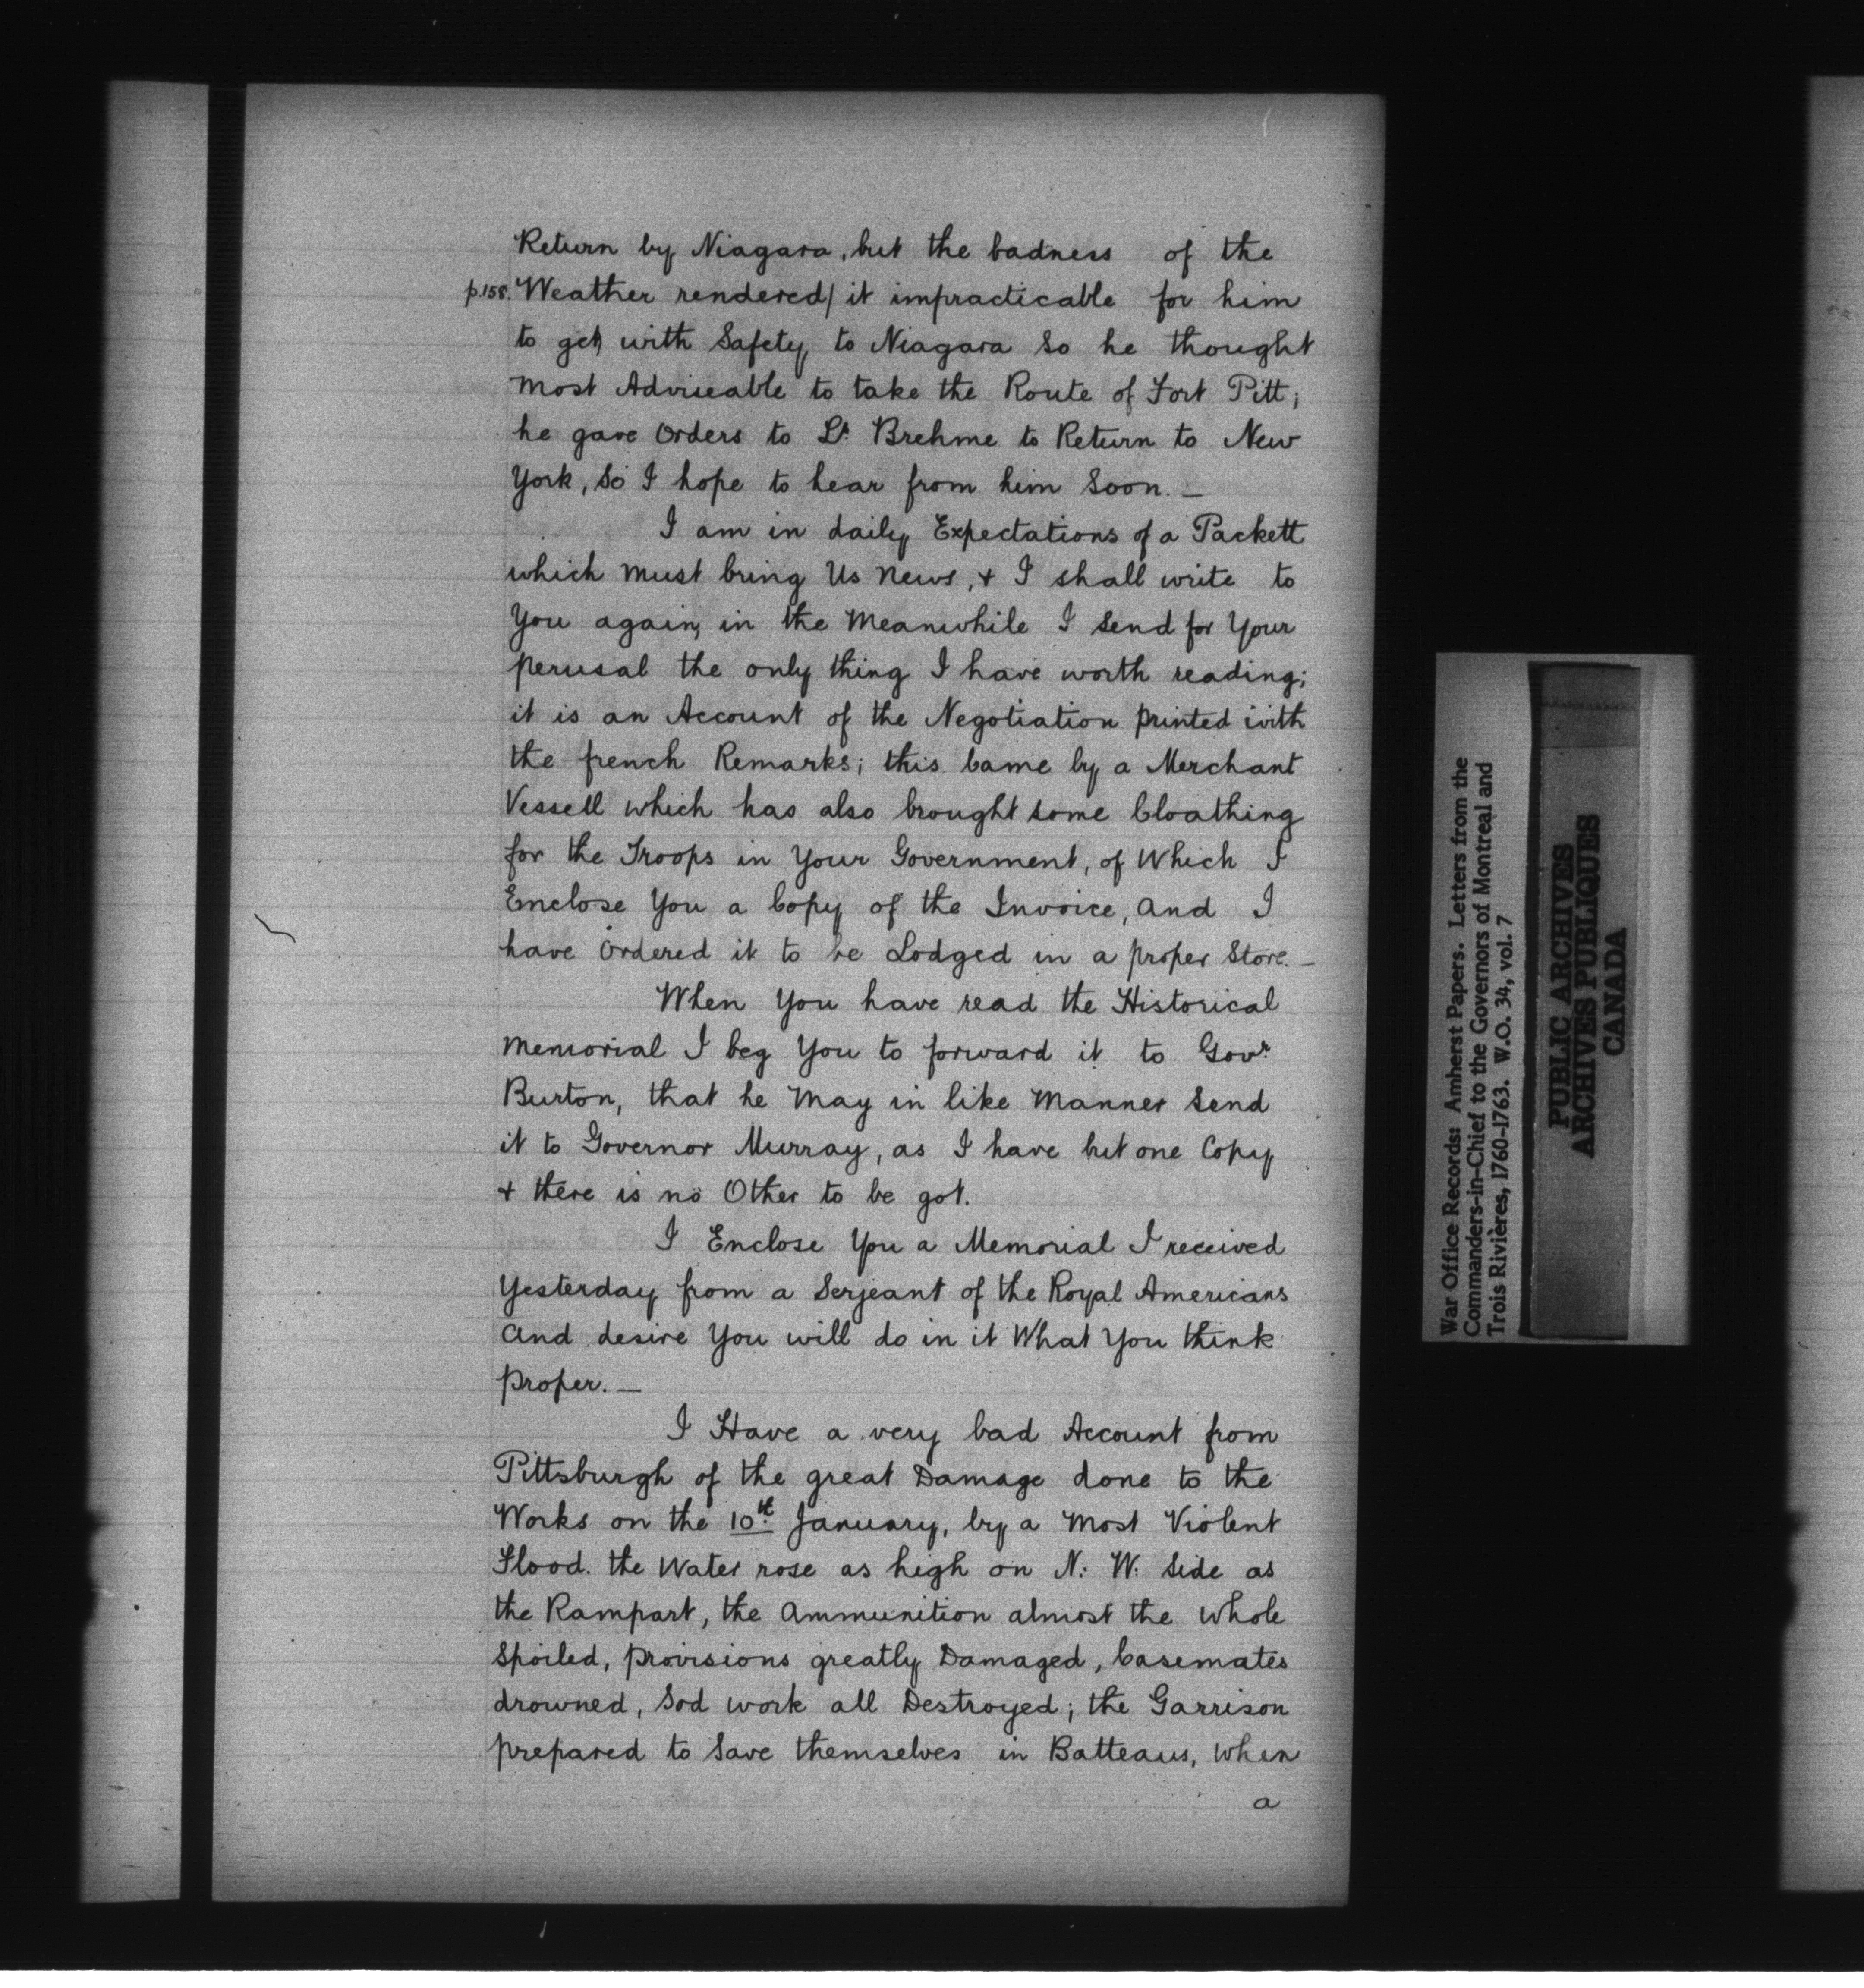 Return by Niagara, but the badness of the
p.158. Weather rendered/ it impracticable for him
to get with Safety to Niagara So he thought
most Adviseable to take the Route of Fort Pitt;
he gave Orders to Lt. Brehme to Return to New
York, So I hope to hear from him Soon. —
I am in daily Expectations of a Packett
which must bring Us News, & I shall write to
You again, in the Meanwhile I Send for Your
perusal the only thing I have worth reading;
it is an Account of the Negotiation printed with
the french Remarks; this Came by a Merchant
Vessell which has also brought Some Cloathing
for the Troops in Your Government, of Which I
Enclose You a Copy of the Invoice, And I
have Ordered it to be Lodged in a proper Store. —
When You have read the Historical
Memorial I beg You to forward it to Govr.
Burton, that he May in like Manner Send
it to Governor Murray, as I have but one Copy
& there is no Other to be got.
I Enclose You a Memorial I received
Yesterday from a Serjeant of the Royal Americans
And desire You will do in it What You think
proper. —
I Have a very bad Account from
Pittsburgh of the great Damage done to the
Works on the 10th. January, by a Most Violent
Flood. the Water rose as high on N: W: Side as
the Rampart, the Ammunition almost the Whole
Spoiled, provisions greatly Damaged, Casemates
drowned, Sod work all Destroyed; the Garrison
prepared to Save themselves in Batteaus, When
a
War Office Records: Amherst Papers. Letters from the
Commanders-in-Chief to the Governors of Montreal and
Trois Rivières, 1760-1763. W.O. 34, vol. 7
PUBLIC ARCHIVES
ARCHIVES PUBLIQUES
CANADA